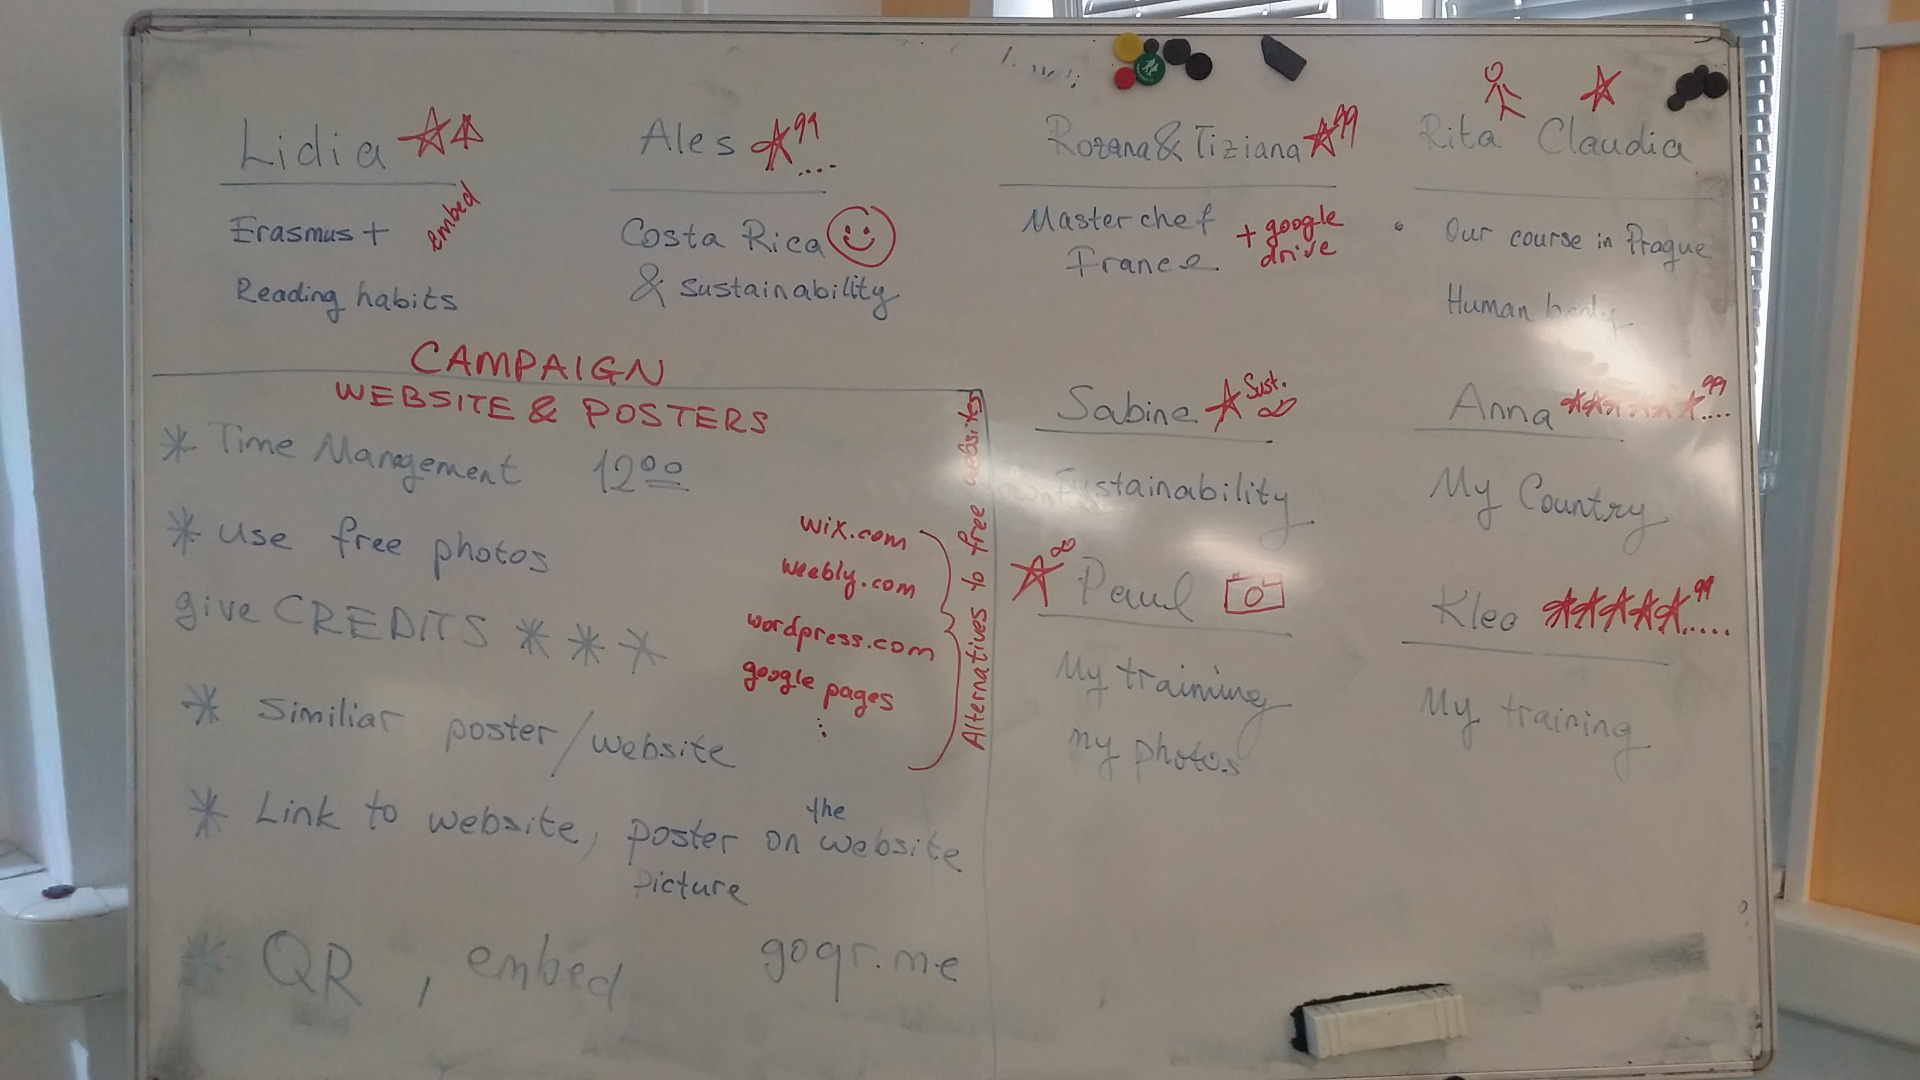 Lidia
Erasmus + embed
Reading habits
Ales 99....
Costa Rica
& sustainability
Rozana & Tiziana 99
Masterchef
France + google drive
Rita Claudia
Our course in Prague
Human body
CAMPAIGN
WEBSITE & POSTERS
* Time Management 12 00
* use free photos
give CREDITS * * *
* Similiar poster/website
* Link to website, poster on the website
picture
* QR, embed goqr.me
wix.com
weebly.com
wordpress.com
google pages
Alternatives to free websites
Sabine Sust. ∞
Sustainability
Anna 99....
My Country
∞ Paul
My training
my photos
Kleo 99.....
My training